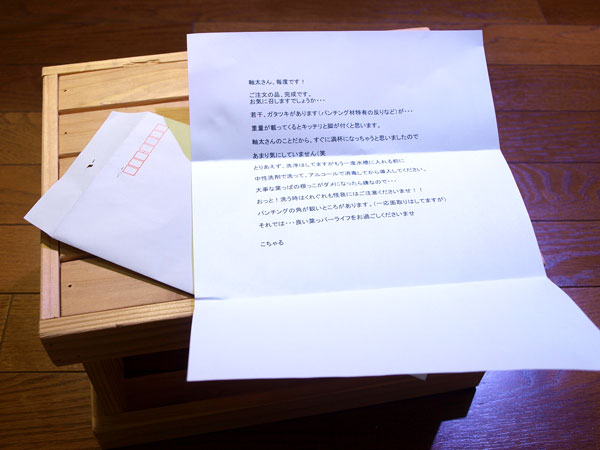 軸太さん、毎度です！
ご注文の品、完成です。
お気に召しますでしょうか・・・
若干、ガタツキがあります（パンチング材特有の反りなど）が・・・
重量が載ってくるとキッチリと脚が付くと思います。
軸太さんのことだから、すぐに満杯になっちゃうと思いましたので
あまり気にしていません（笑
とりあえず、洗浄はしてますがもう一度水槽に入れる前に
中性洗剤で洗って、アルコールで消毒してから導入してください。
大事な葉っぱの根っこがダメになったら嫌なので・・・
おっと！洗う時はくれぐれも怪我にはご注意くださいませ！！
パンチングの角が鋭いところがあります。（一応面取りはしてますが）
それでは・・・良い葉っパーライフをお過ごしくださいませ
こちゃる